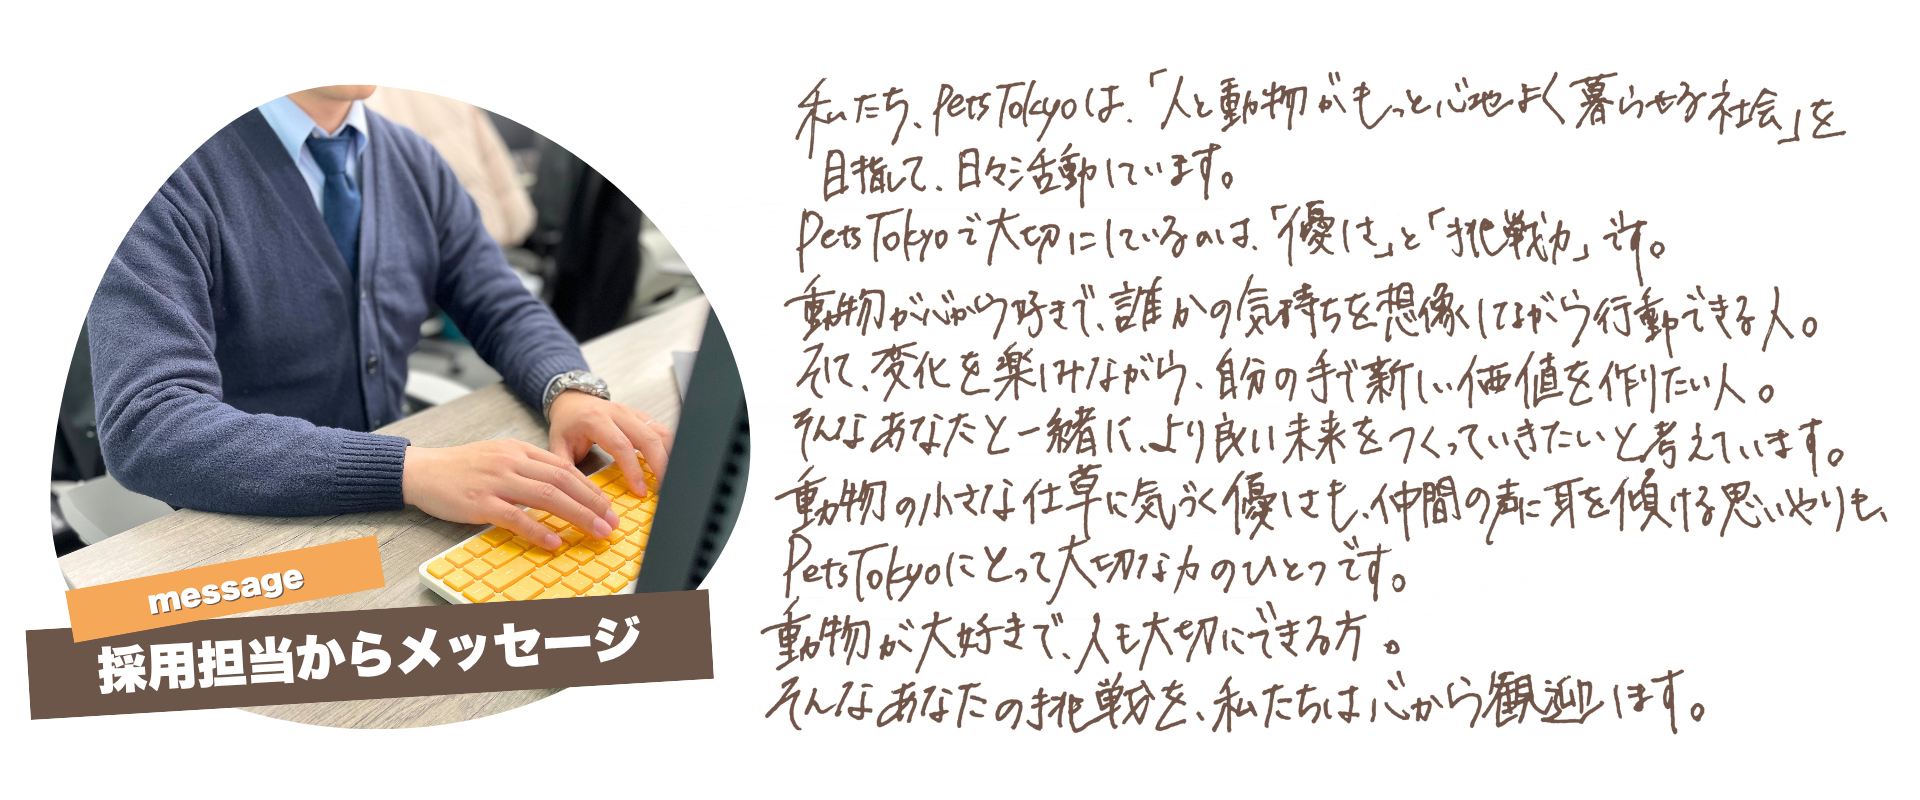 message
採用担当からメッセージ
私たち、Pets Tokyoは、「人と動物がもっと心地よく暮らせる社会」を
目指して、日々活動しています。
Pets Tokyoで大切にしているのは、「優しさ」と「挑戦力」です。
動物が心から好きで、誰かの気持ちを想像しながら行動できる人。
そして、変化を楽しみながら、自分の手で新しい価値を作りたい人。
そんなあなたと一緒に、より良い未来をつくっていきたいと考えています。
動物の小さな仕草に気づく優しさも、仲間の声に耳を傾ける思いやりも、
Pets Tokyoにとって大切な力のひとつです。
動物が大好きで、人も大切にできる方。
そんなあなたの挑戦を、私たちは心から歓迎します。